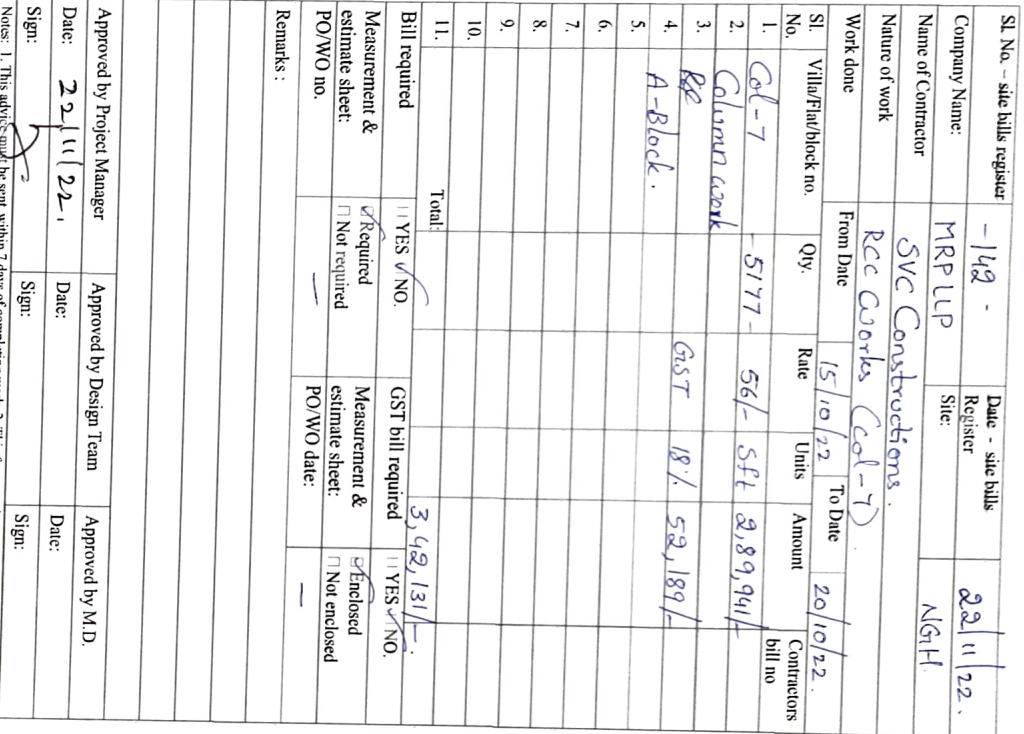 Sl. No. – site bills register -142- Date - site bills Register 22/11/22.
Company Name: MRP LLP Site: NGH.
Name of Contractor SVC Constructions.
Nature of work RCC Works (Col-7)
Work done From Date 15/10/22 To Date 20/10/22.
Sl. No. Villa/Flat/block no. Qty. Rate Units Amount Contractors bill no
1. Col-7 -5177- 56/- Sft 2,89,941/-
2. Column work
3. GST 18% 52,189/-
4. A-Block.
5.
6.
7.
8.
9.
10.
11. Total: 3,42,131/-.
Bill required □ YES ✓ NO. GST bill required □ YES ✓ NO.
Measurement & estimate sheet: ☑ Required □ Not required Measurement & estimate sheet: ☑ Enclosed □ Not enclosed
PO/WO no. — PO/WO date: —
Remarks :
Approved by Project Manager Approved by Design Team Approved by M.D.
Date: 22/11/22. Date: Date:
Sign: Sign: Sign:
Notes: 1. This advice must be sent within 7 days of